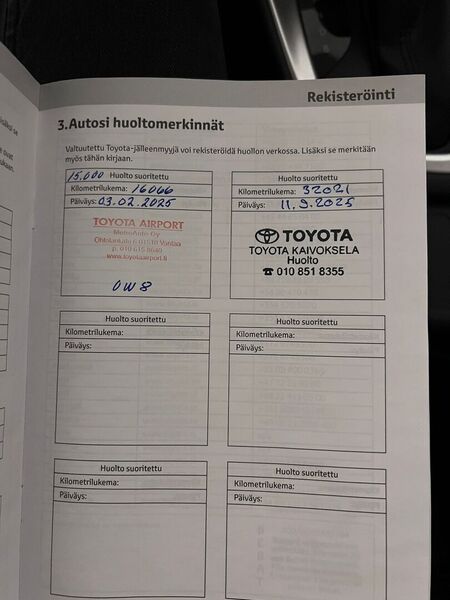 Rekisteröinti
3.Autosi huoltomerkinnät
Valtuutettu Toyota-jälleenmyyjä voi rekisteröidä huollon verkossa. Lisäksi se merkitään
myös tähän kirjaan.
15,000 Huolto suoritettu
Kilometrilukema: 16066
Päiväys: 03.02.2025
TOYOTA AIRPORT
MetroAuto Oy
Ohtolankatu 6 01510 Vantaa
www.toyotaairport.fi
OW8
Huolto suoritettu
Kilometrilukema: 32021
Päiväys: 11.9.2025
TOYOTA
TOYOTA KAIVOKSELA
Huolto
☎ 010 851 8355
Huolto suoritettu
Kilometrilukema:
Päiväys:
Huolto suoritettu
Kilometrilukema:
Päiväys:
Huolto suoritettu
Kilometrilukema:
Päiväys:
Huolto suoritettu
Kilometrilukema:
Päiväys: